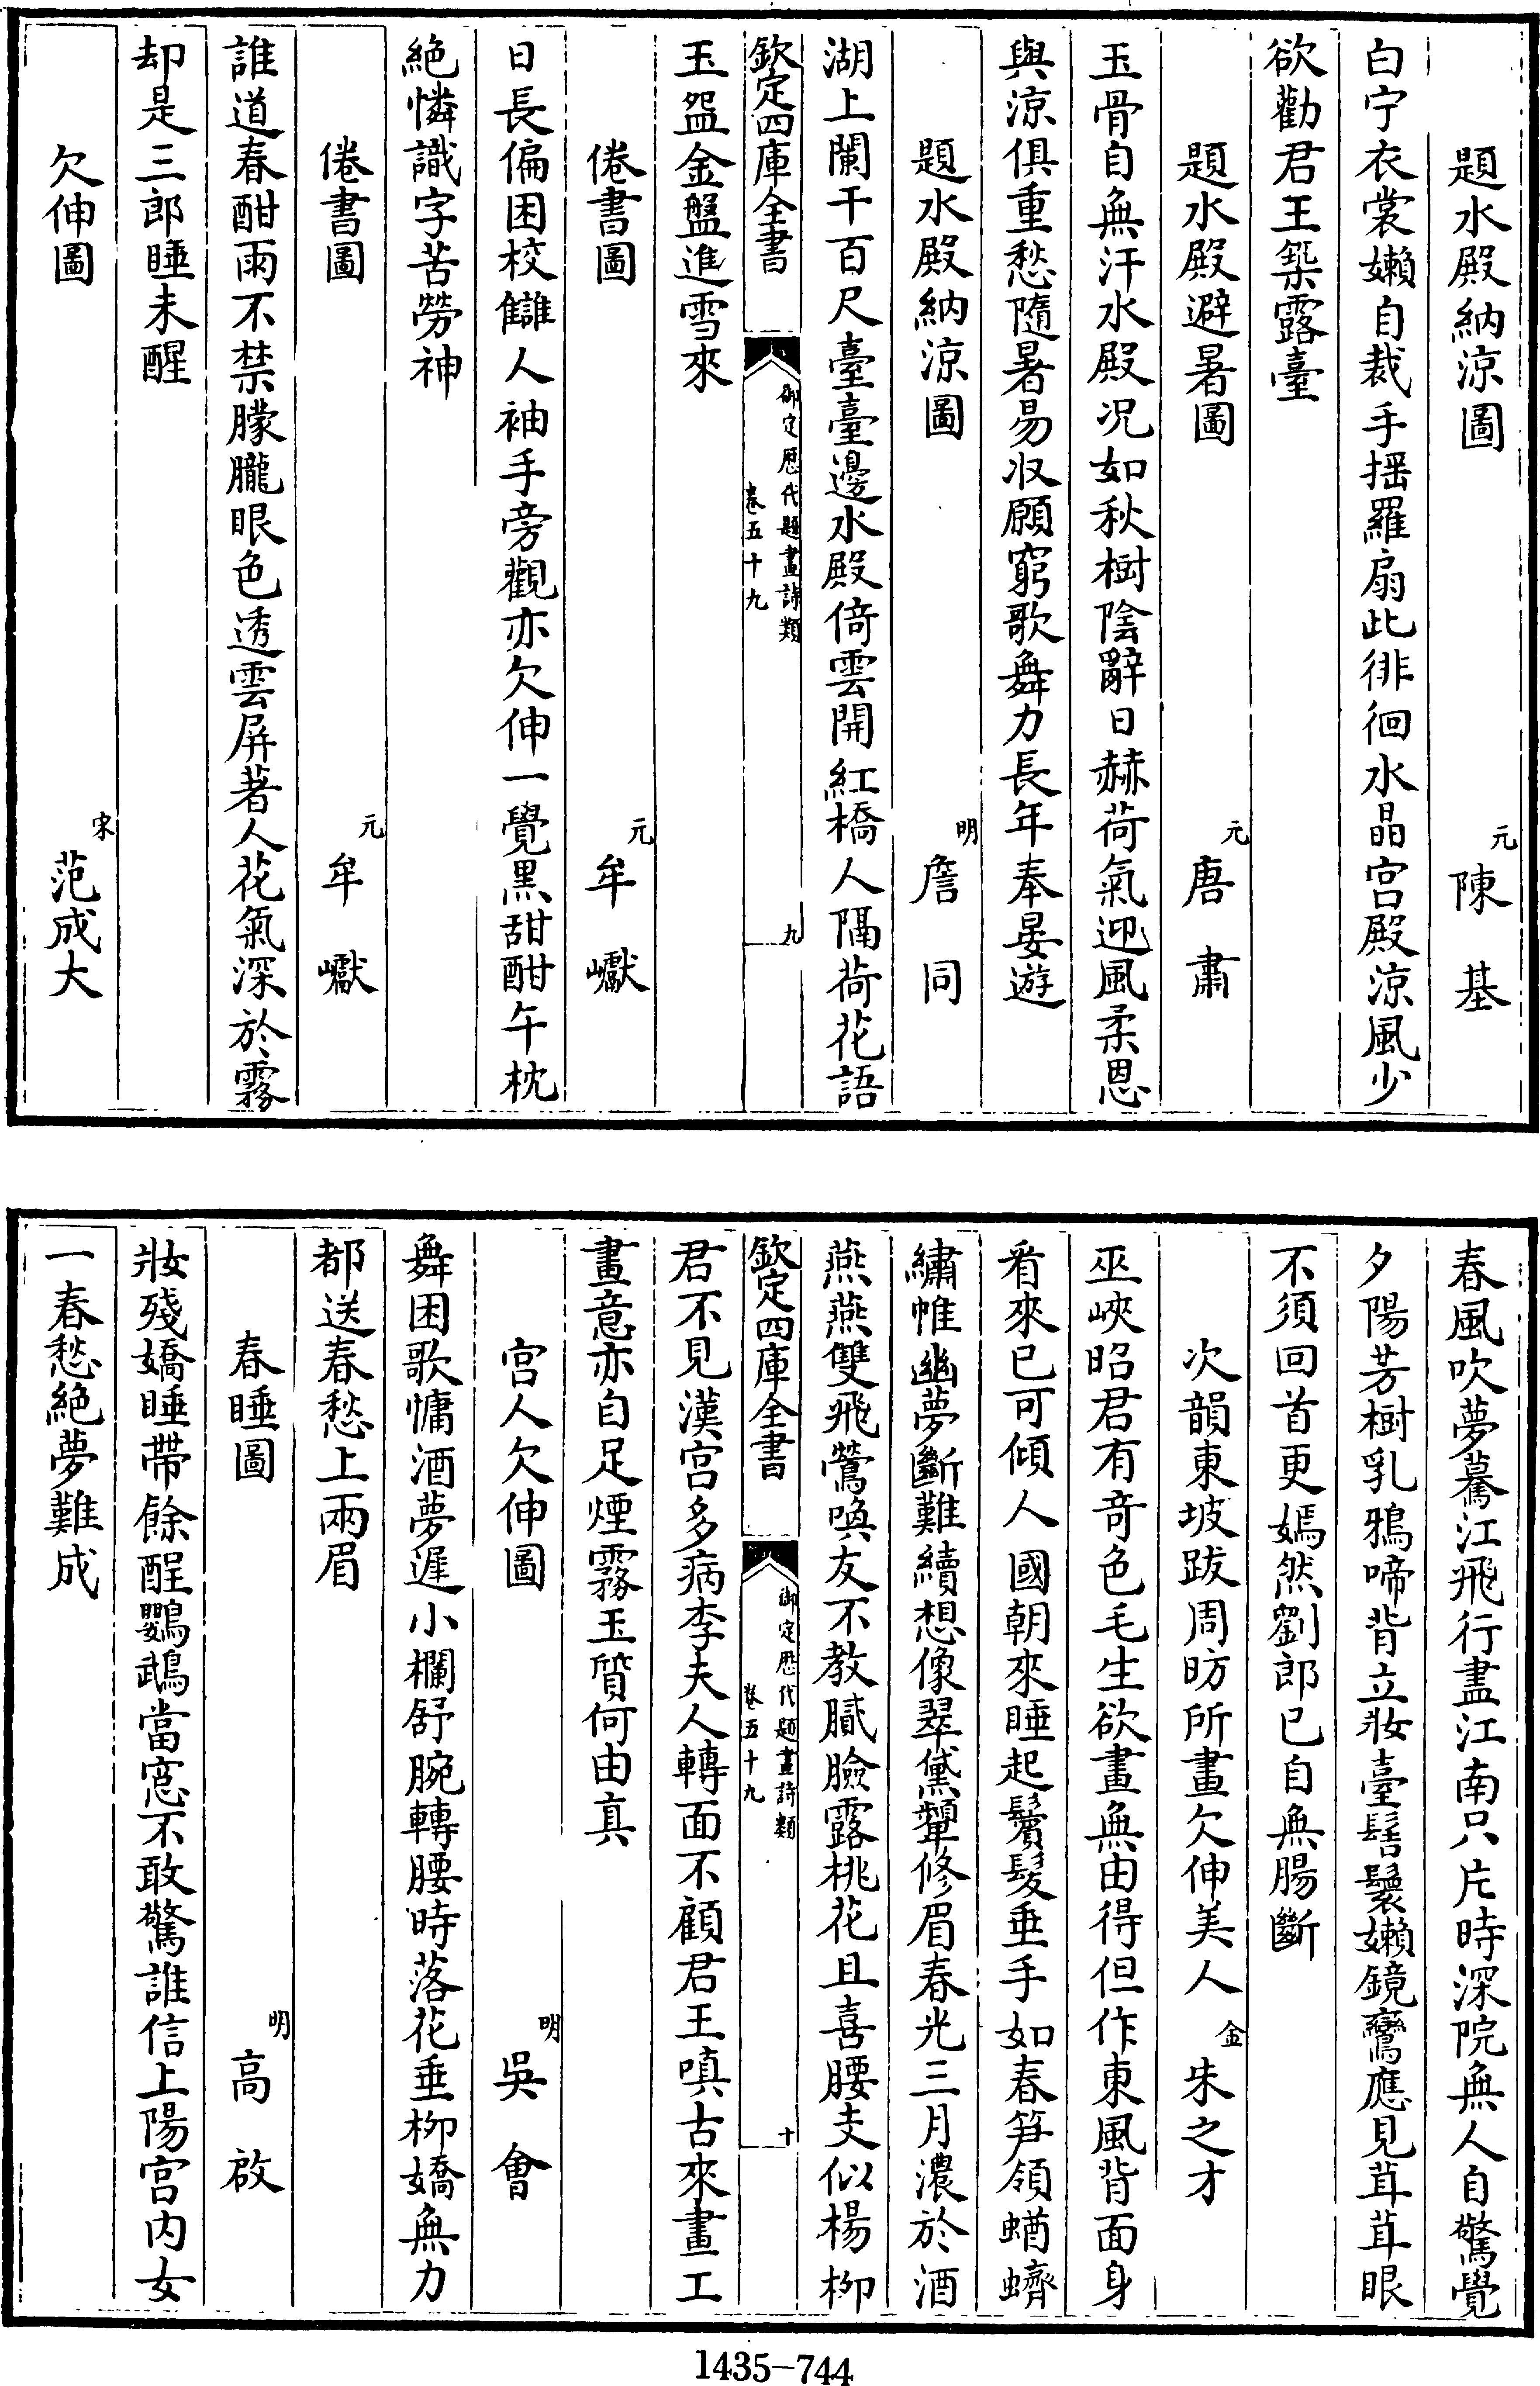 題水殿納涼圖　元陳基
白宁衣裳嬾自裁手揺羅扇此徘徊水晶宫殿涼風少
欲勸君王築露臺
題水殿避暑圖　元唐肅
玉骨自無汗水殿况如秋樹陰辭日赫荷氣迎風柔恩
與涼俱重愁隨暑易收願窮歌舞力長年奉晏遊
題水殿納涼圖　明詹同
湖上闌干百尺臺臺邊水殿倚雲開紅橋人隔荷花語
欽定四庫全書　御定歴代題畫詩類卷五十九　九
玉盌金盤進雪來
倦書圖　元牟巘
日長偏困校讎人袖手旁觀亦欠伸一覺黒甜酣午枕
絕憐識字苦勞神
倦書圖　元牟巘
誰道春酣雨不禁朦朧眼色透雲屏著人花氣深於霧
却是三郎睡未醒
欠伸圖　宋范成大
春風吹夢驀江飛行盡江南只片時深院無人自驚覺
夕陽芳樹乳鴉啼背立妝臺髻鬟嬾鏡鸞應見茸茸眼
不須回首更嫣然劉郎已自無腸斷
次韻東坡跋周昉所畫欠伸美人　金朱之才
巫峽昭君有奇色毛生欲畫無由得但作東風背面身
看來已可傾人國朝來睡起鬢髮垂手如春笋領蝤蠐
繡帷幽夢斷難續想像翠黛顰修眉春光三月濃於酒
燕燕雙飛鶯喚友不教膩臉露桃花且喜腰支似楊柳
欽定四庫全書　御定歴代題畫詩類卷五十九　十
君不見漢宫多病李夫人轉面不顧君王嗔古來畫工
畫意亦自足煙霧玉質何由真
宫人欠伸圖　明吳會
舞困歌慵酒夢遲小欄舒腕轉腰時落花垂柳嬌無力
都送春愁上兩眉
春睡圖　明高啟
妝殘嬌睡帶餘酲鸚鵡當窓不敢驚誰信上陽宫内女
一春愁絕夢難成
1435-744